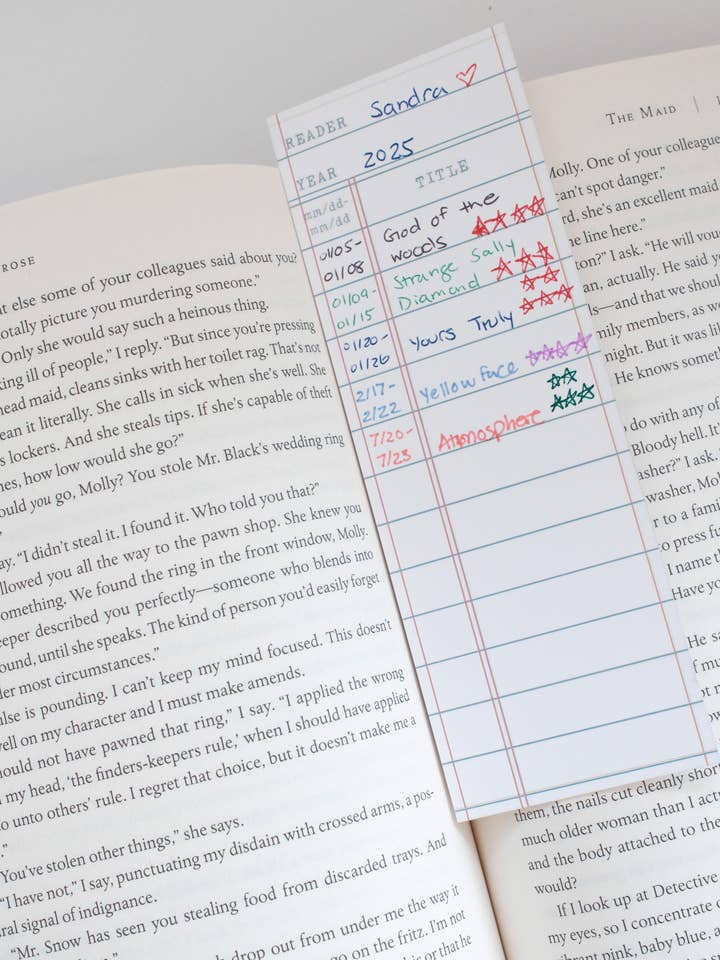 ROSE
t else some of your colleagues said about you?
otally picture you murdering someone."
Only she would say such a heinous thing.
king ill of people," I reply. "But since you're pressing
head maid, cleans sinks with her toilet rag. That's not
ean it literally. She calls in sick when she's well. She
s lockers. And she steals tips. If she's capable of theft
nes, how low would she go?"
ould you go, Molly? You stole Mr. Black's wedding ring
ay. "I didn't steal it. I found it. Who told you that?"
llowed you all the way to the pawn shop. She knew you
omething. We found the ring in the front window, Molly.
eeper described you perfectly—someone who blends into
ound, until she speaks. The kind of person you'd easily forget
der most circumstances."
ulse is pounding. I can't keep my mind focused. This doesn't
ell on my character and I must make amends.
hould not have pawned that ring," I say. "I applied the wrong
my head, 'the finders-keepers rule,' when I should have applied
o unto others' rule. I regret that choice, but it doesn't make me a
."
"You've stolen other things," she says.
"I have not," I say, punctuating my disdain with crossed arms, a pos-
ral signal of indignance.
"Mr. Snow has seen you stealing food from discarded trays. And
drop out from under me the way it
go on the fritz. I'm not
is or that he
READER Sandra
YEAR 2025
mm/dd-
mm/dd
TITLE
01/05-
01/08
God of the
woods
01/09-
01/15
Strange Sally
Diamond
01/20-
01/26
Yours Truly
2/17-
2/22
Yellow Face
7/20-
7/23
Atmosphere
THE MAID |
Molly. One of your colleague
can't spot danger."
rd, she's an excellent maid
e line here."
on?" I ask. "He will vou
an, actually. He said y
ls—and that we shoul
mily members, as w
night. But it was lik
He knows somet
do with any of
Bloody hell. It
asher?" I ask.
washer, Mol
r to a famil
o press fu
I name t
Have yo
He sa
f mu
ot r
them, the nails cut cleanly shor
much older woman than I actu
and the body attached to the
would?
If I look up at Detective
my eyes, so I concentrate o
vibrant pink, baby blue, a